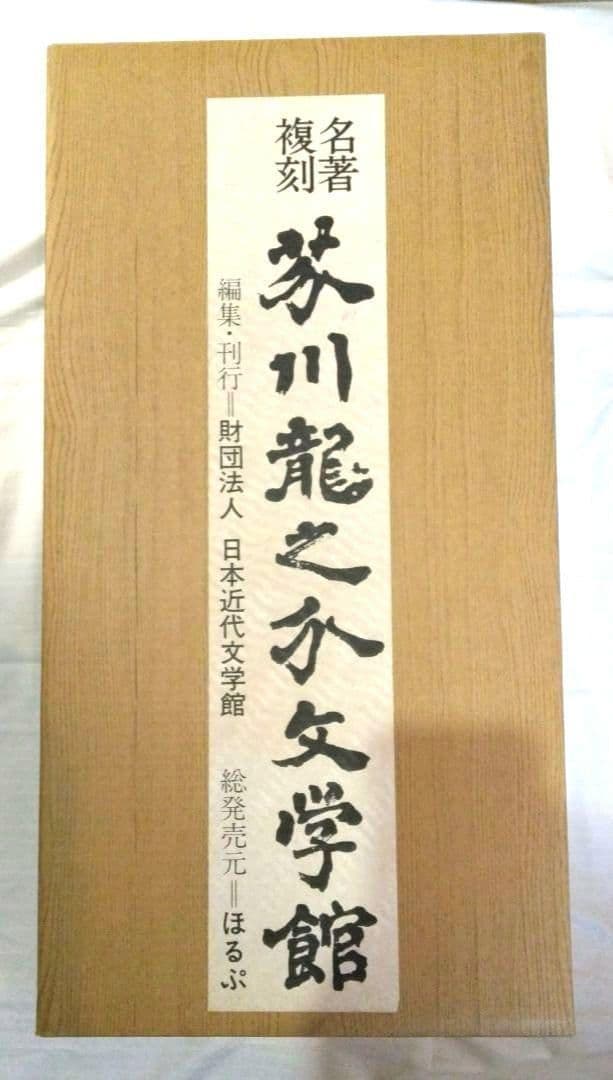 名著
複刻
芥川龍之介文学館
編集・刊行＝財団法人 日本近代文学館 総発売元＝ほるぷ